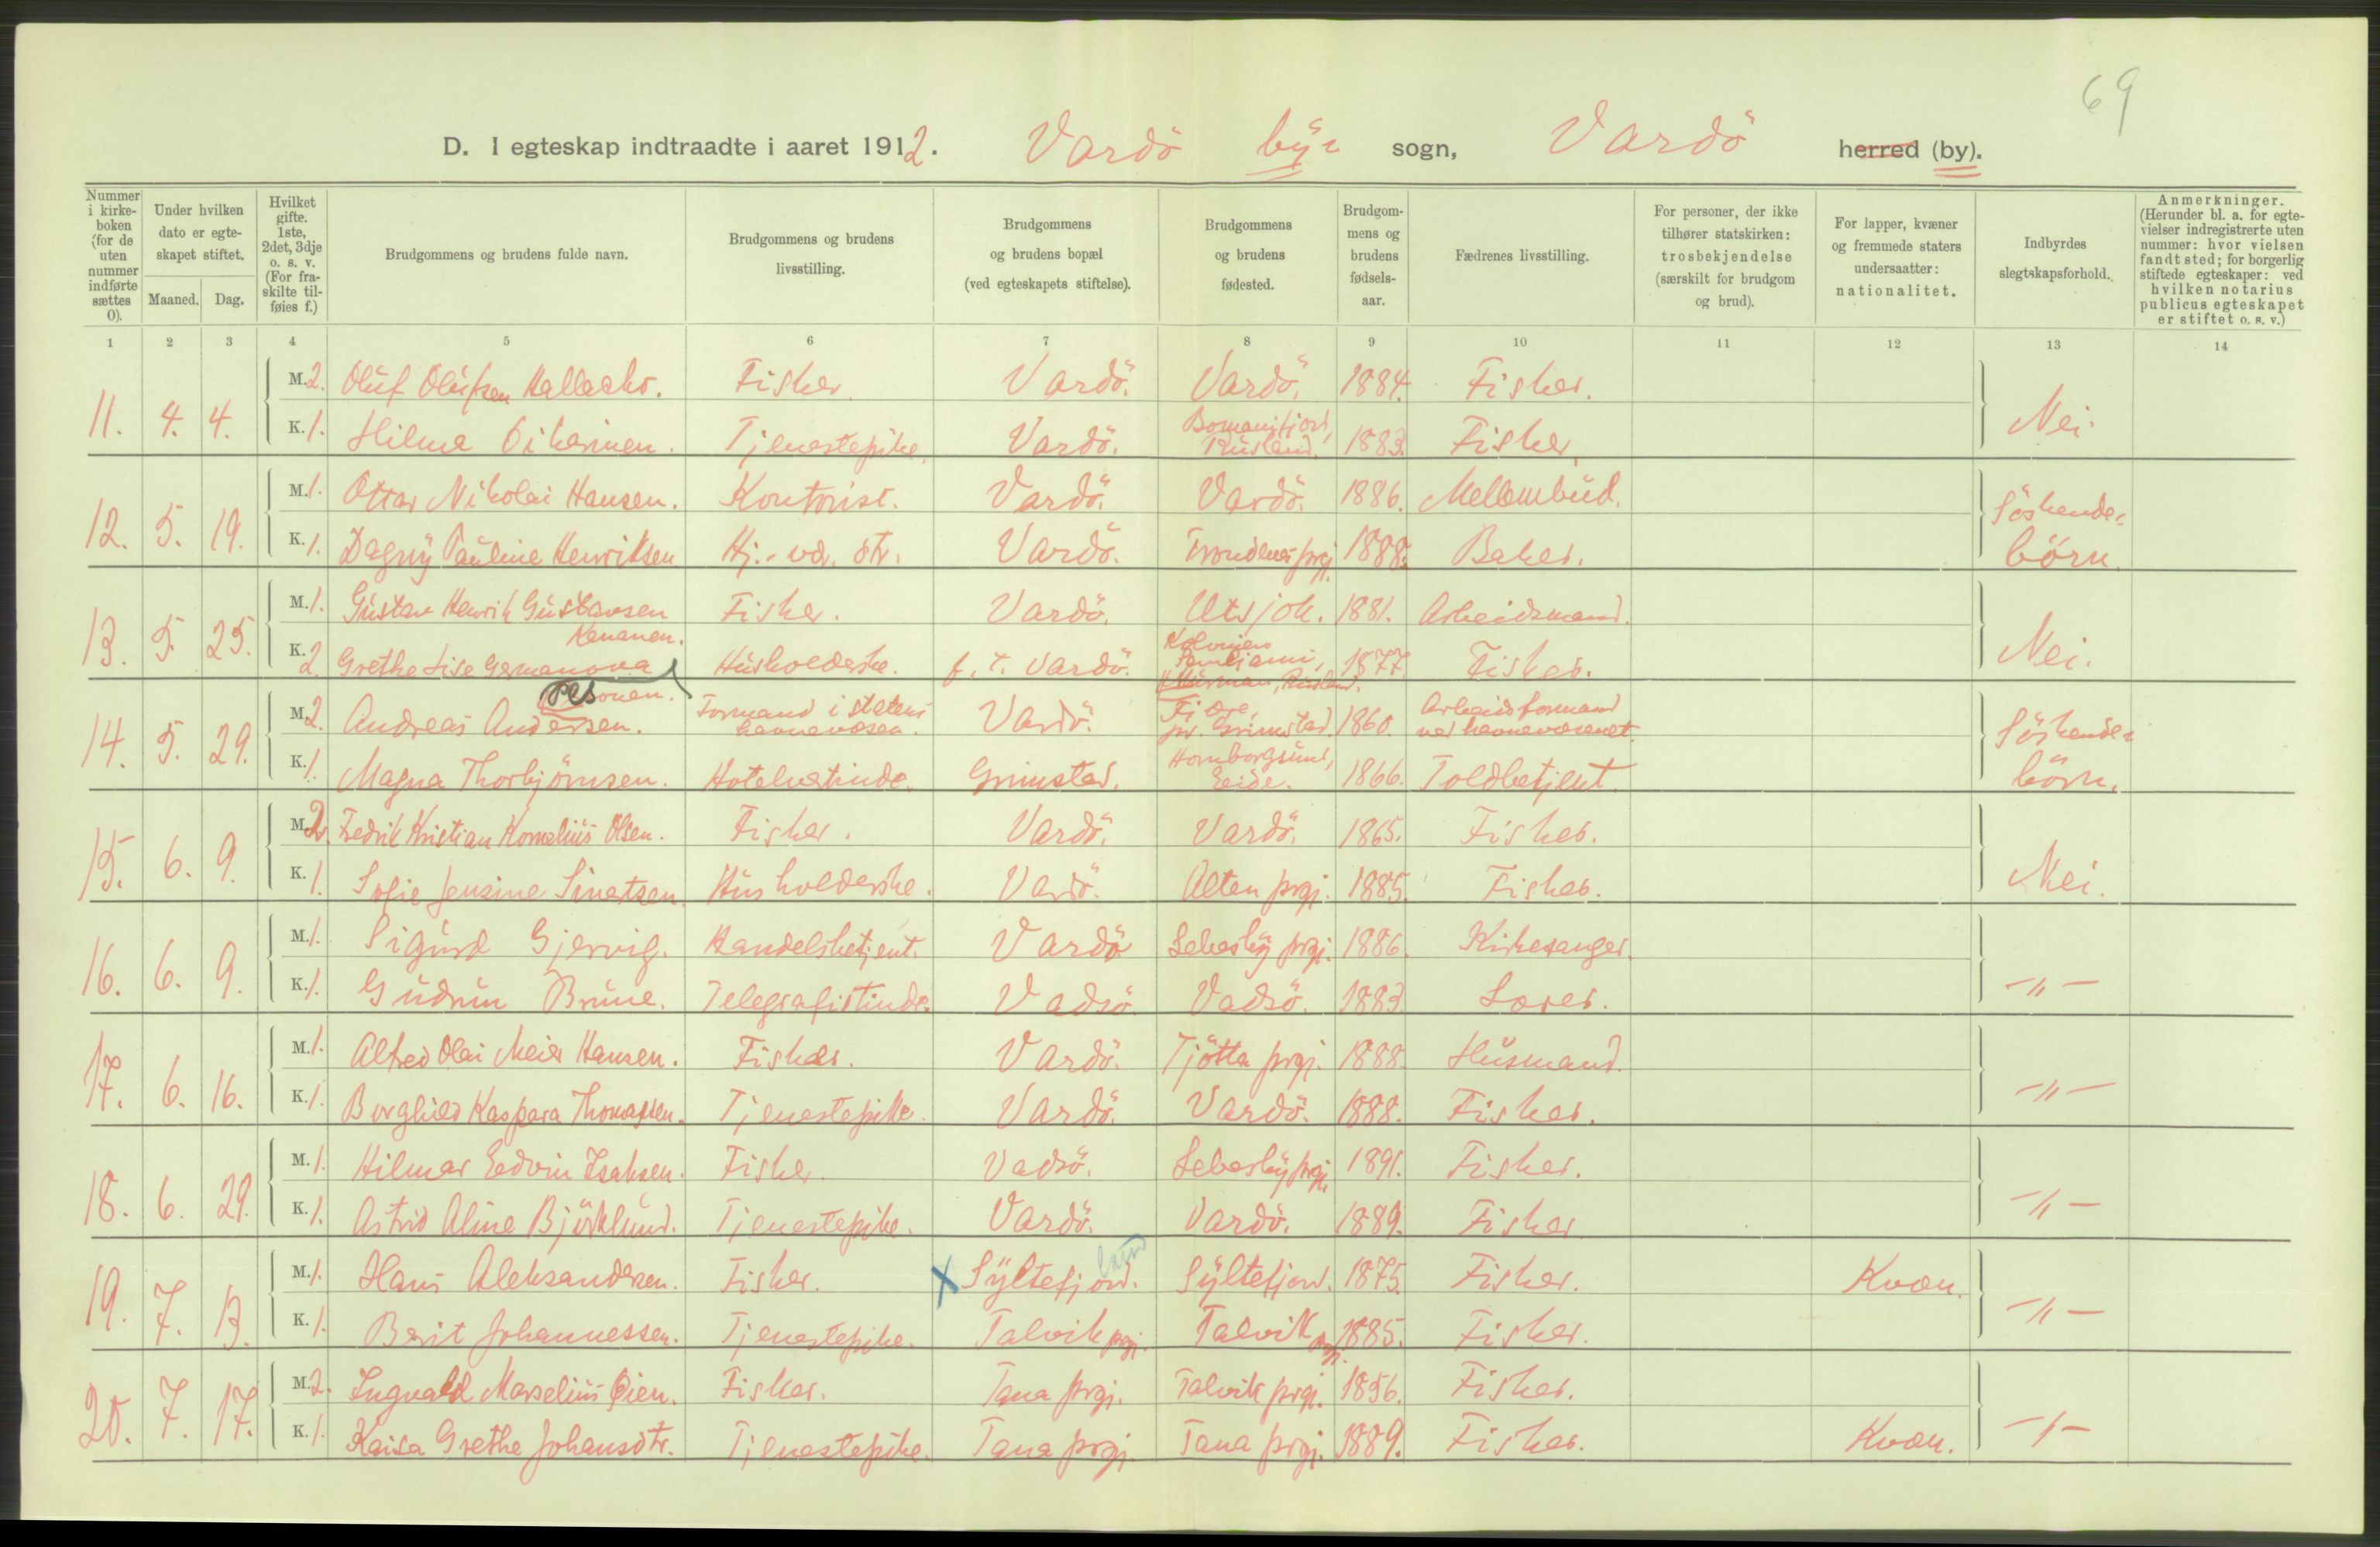 69
D. I egteskap indtraadte i aaret 1912. Vardö by- sogn, Vardö herred (by).
Nummer i kirkeboken (for de uten nummer indførte sættes 0). Under hvilken dato er egteskapet stiftet. Maaned. Dag. Hvilket gifte. 1ste, 2det, 3dje o. s. v. (For fraskilte tilføies f.) Brudgommens og brudens fulde navn. Brudgommens og brudens livsstilling. Brudgommens og brudens bopæl (ved egteskapets stiftelse). Brudgommens og brudens fødested. Brudgommens og brudens fødselsaar. Fædrenes livsstilling. For personer, der ikke tilhører statskirken: trosbekjendelse (særskilt for brudgom og brud). For lapper, kvæner og fremmede staters undersaatter: nationalitet. Indbyrdes slegtskapsforhold. Anmerkninger. (Herunder bl. a. for egtevielser indregistrerte uten nummer: hvor vielsen fandt sted; for borgerlig stiftede egteskaper: ved hvilken notarius publicus egteskapet er stiftet o. s. v.)
1 2 3 4 5 6 7 8 9 10 11 12 13 14
11. 4. 4. M. 2. Oluf Olufsen Fisker. Vardö. Vardö. 1884. Fisker. Nei.
K. 1. Hilma Tjenestepike. Vardö. Bomanifjord, Rusland. 1883. Fisker.
12. 5. 19. M. 1. Ottar Nikolai Hansen. Kontorist. Vardö. Vardö. 1886. Mellembud. Söskende-
K. 1. Dagny Pauline Henriksen Hj.- vd. str. Vardö. Trondenes prgj. 1888. Baker. börn.
13. 5. 25. M. 1. Gustav Henrik Gustavsen Kenanen. Fisker. Vardö. Utsjok. 1881. Arbeidsmand. Nei.
K. 2. Grethe Lise Germanova Husholderske. f. t. Vardö. Kolonien Murman, Rusland. 1877. Fisker.
14. 5. 29. M. 2. Andreas Andersen. Formand i statens havnevæsen. Vardö. Fjære, pr. Grimstad 1860. Arbeidsformand ved havnevæsenet. Söskende-
K. 1. Magna Thorbjörnsen. Hotelvertinde. Grimstad. Homborgsund, Eide. 1866. Toldbetjent. börn.
15. 6. 9. M. 2. Fedrik Kristian Kornelius Olsen. Fisker. Vardö. Vardö. 1865. Fisker. Nei.
K. 1. Sofie Jensine Sivertsen. Husholderske. Vardö. Alten prgj. 1885. Fisker.
16. 6. 9. M. 1. Sigurd Gjervig. Handelsbetjent. Vardö Lebesby prgj. 1886. Kirkesanger. -"-
K. 1. Gudrun Brune. Telegrafistinde. Vadsö Vadsö. 1883. Lærer.
17. 6. 16. M. 1. Alfred Olai Meier Hansen. Fisker. Vardö. Tjötta prgj. 1888. Husmand. -"-
K. 1. Borghild Kaspara Thomassen. Tjenestepike. Vardö. Vardö. 1888. Fisker.
18. 6. 29. M. 1. Hilmar Edvin Isaksen. Fisker. Vadsö. Lebesby prgj. 1891. Fisker. -"-
K. 1. Astrid Aline Björklund. Tjenestepike. Vardö. Vardö. 1889. Fisker
19. 7. 13. M. 1. Hans Aleksandersen. Fisker. X Syltefjord. Syltefjord. 1875. Fisker. Kvæn. -"-
K. 1. Berit Johannessen. Tjenestepike. Talvik prgj. Talvik prgj. 1885. Fisker.
20. 7. 17. M. 2. Ingvald Marselius Øien. Fisker. Tana prgj. Talvik prgj. 1856. Fisker. -"-
K. 1. Kaisa Grethe Johansdtr. Tjenestepike. Tana prgj. Tana prgj. 1889. Fisker. Kvæn.